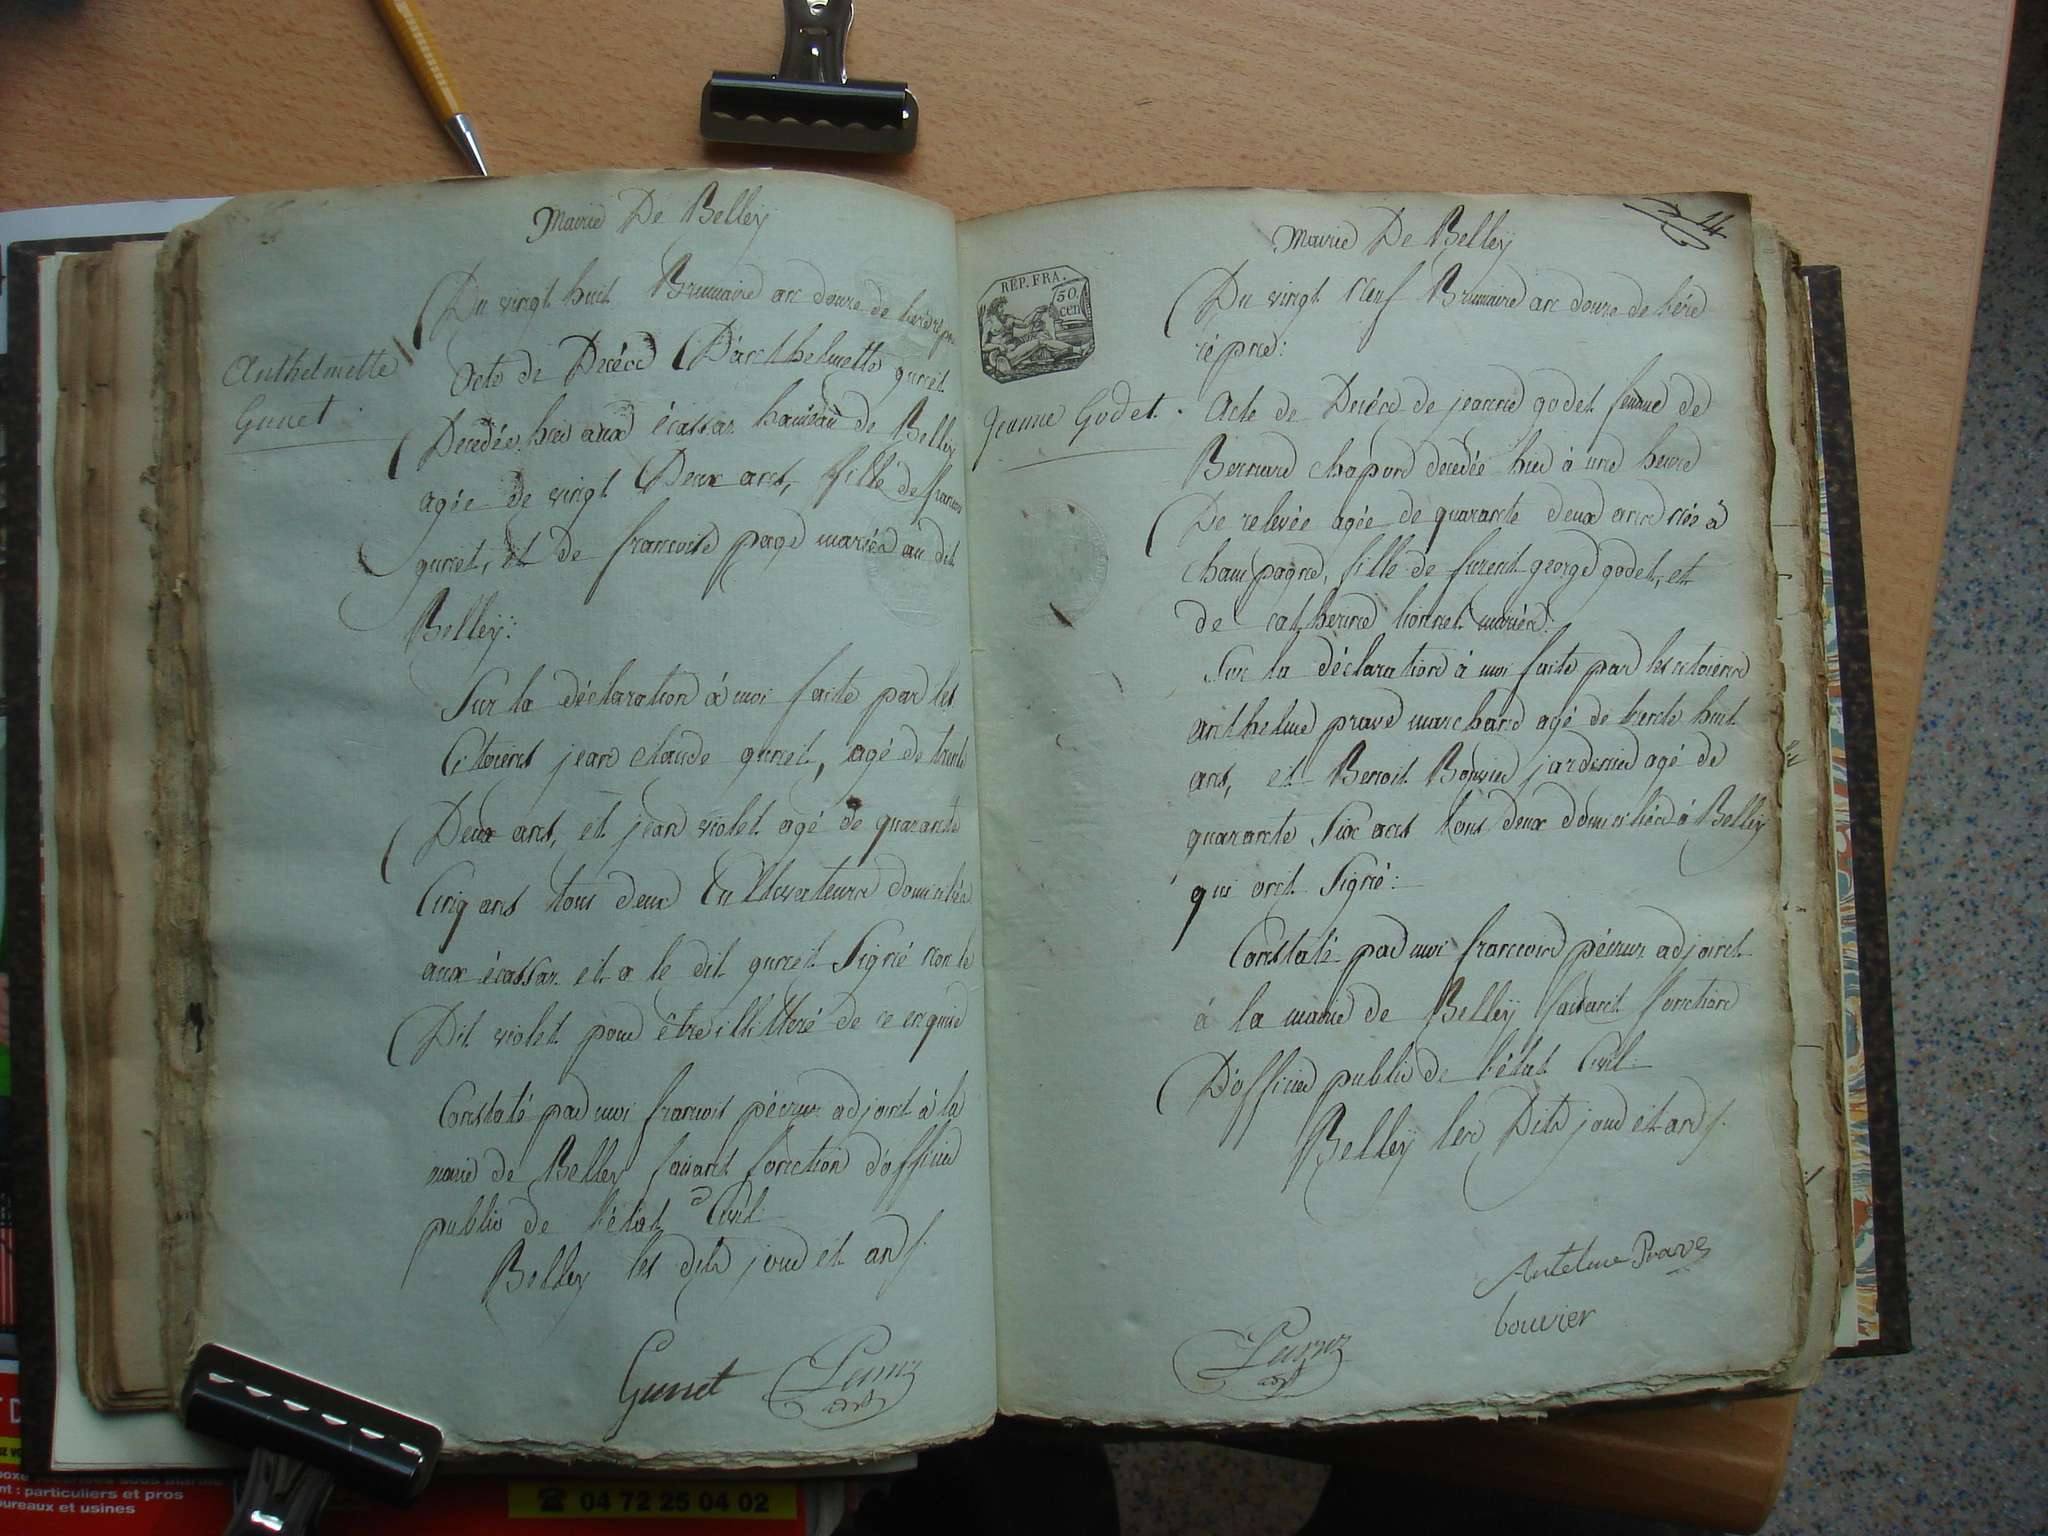 Mairie De Belleÿ
Du vingt huit Brumaire an douze de l'ère rép.ne
Anthelmette
Gunet
Acte de Décéd D'anthelmette gunet
Decedée hier aux écassaz hameau de Belley
agée de vingt Deux ans, fille de francois
gunet, et de francoise page mariés au dit
Belleÿ:
Sur la déclaration à moi faite par les
Citoiens jean claude gunet, agé de trente
Deux ans, et jean violet agé de quarante
Cinq ans tous deux Cultivateurs domiciliés
aux écassaz et a le dit gunet Signé non le
Dit violet pour être illittéré de ce enquis
Constaté par moi francois adjoint à la
mairie de Belley faisant fonction d'officier
public de l'état Civil
Belley les dits jour et an
Gunet
Mairie De Belleÿ
14
RÉP. FRA.
50
cen
Du vingt Neuf Brumaire an douze de l'ére
répne:
Jeanne Godet.
Acte de Décéd de jeanne godet femme de
Bernard chapond decedée hier à une heure
De relevée agée de quarante deux ans née à
Champagne, fille de george godet, et
de catherine mariés:
Sur la déclaration à moi faite par les citoiens
anthelme prave marchand agé de trente huit
ans, et Benoit Bouvier jardinier agé de
quarante Six ans tous deux domiciliés à Belley
qui ont Signé:
Constaté par moi francois adjoint
à la mairie de Belleÿ faisant fonction
D'officier public de l'état Civil:
Belleÿ les Dits jour et an
Antelme Prave
bouvier
nt : particuliers et pros
bureaux et usines
☎ 04 72 25 04 02